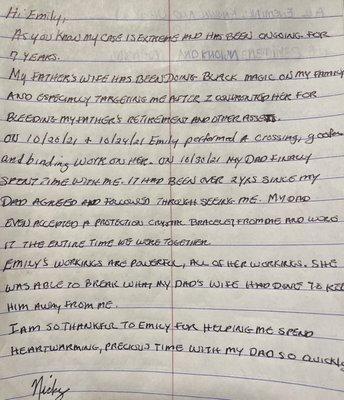 Hi Emily,
AS YOU KNOW MY CASE IS EXTREME AND HAS BEEN ONGOING FOR
7 YEARS.
MY FATHER'S WIFE HAS BEEN DOING BLACK MAGIC ON MY FAMILY
AND ESPECIALLY TARGETING ME AFTER I CONFRONTED HER FOR
BLEEDING MY FATHER'S RETIREMENT AND OTHER ASSETS.
ON 10/20/21 & 10/24/21 Emily performed A CROSSING,
and binding WORK ON HER. ON 10/30/21 MY DAD FINALLY
SPENT TIME WITH ME. IT HAD BEEN OVER 2 YRS SINCE MY
DAD AGREED AND FOLLOWED THROUGH SEEING ME. MY DAD
EVEN ACCEPTED A PROTECTION CRYSTAL BRACELET FROM ME AND WORE
IT THE ENTIRE TIME WE WERE TOGETHER.
EMILY'S WORKINGS ARE POWERFUL, ALL OF HER WORKINGS. SHE
WAS ABLE TO BREAK WHAT MY DAD'S WIFE HAD DONE TO KEE
HIM AWAY FROM ME.
I AM SO THANKFUL TO EMILY FOR HELPING ME SPEND
HEARTWARMING, PRECIOUS TIME WITH MY DAD SO QUICKLY
Nicky